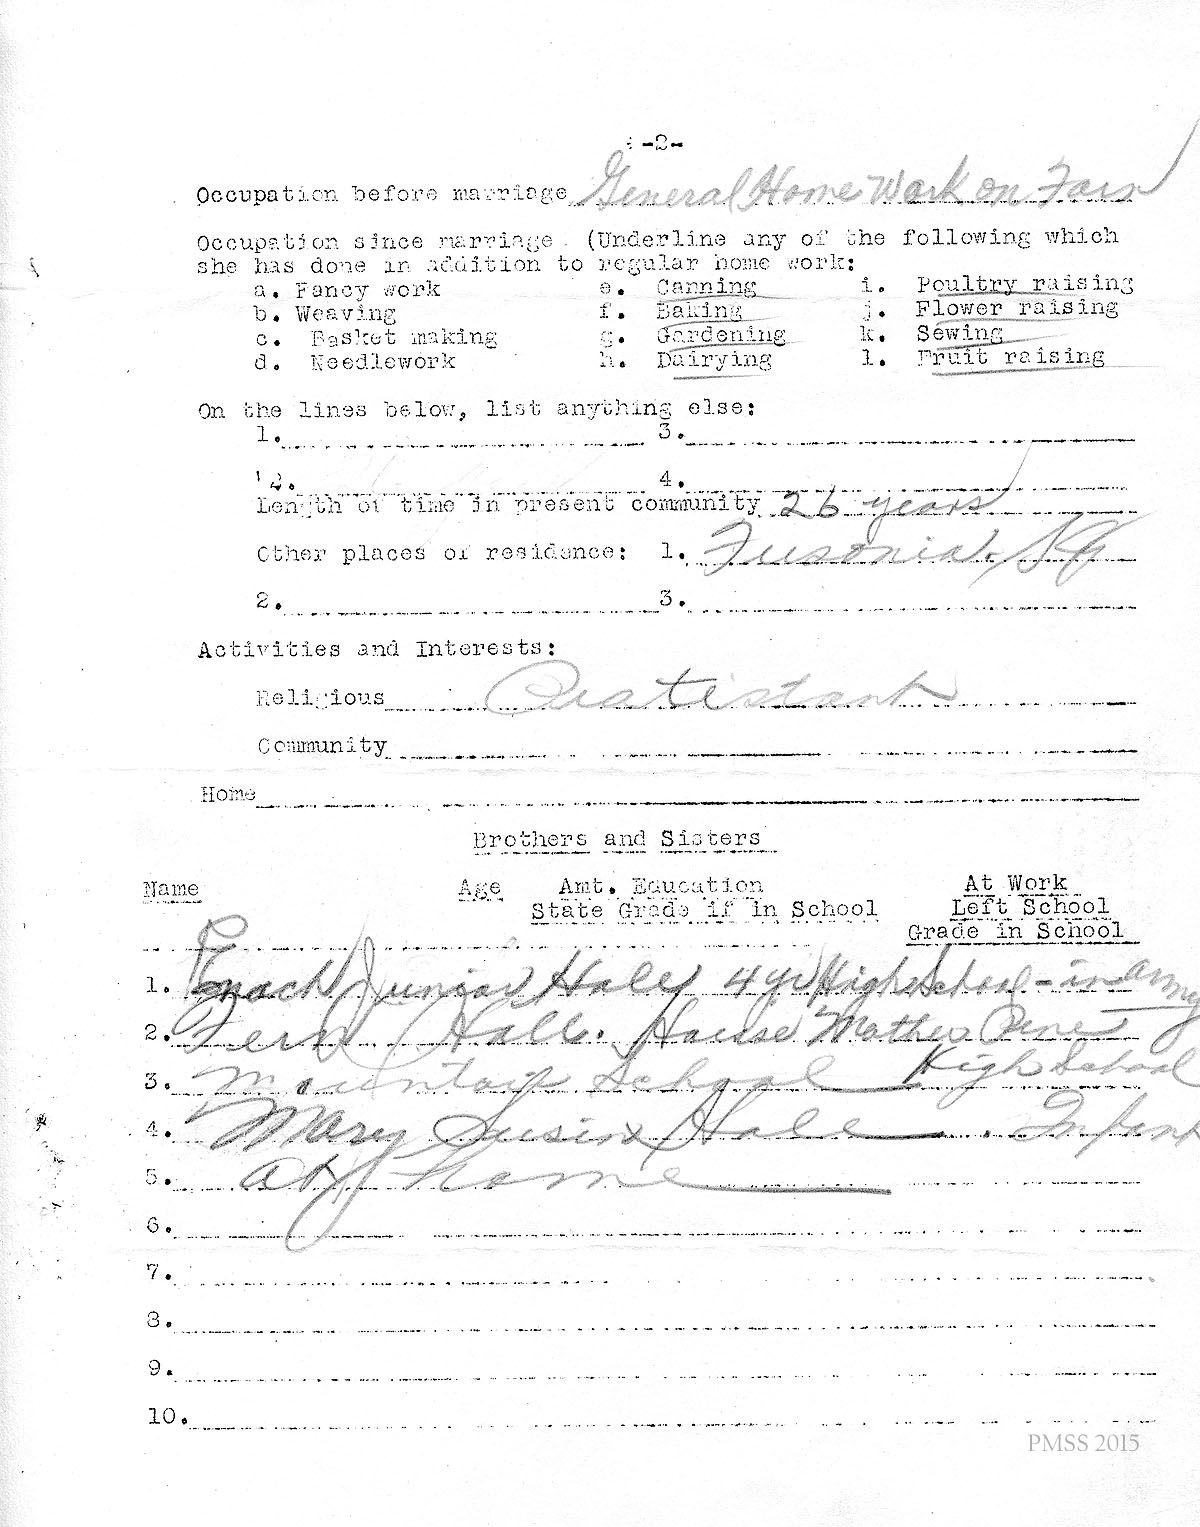 -2-
Occupation before marriage General Home Work on Farm
Occupation since marriage. (Underline any of the following which
she has done in addition to regular home work:
a. Fancy work e. Canning i. Poultry raising
b. Weaving f. Baking j. Flower raising
c. Basket making g. Gardening k. Sewing
d. Needlework h. Dairying l. Fruit raising
On the lines below, list anything else:
1. 3.
2. 4.
Length of time in present community 26 years
Other places of residence: 1. Fusonia. Ky
2. 3.
Activities and Interests:
Religious Pratistant
Community
Home
Brothers and Sisters
Name Age Amt. Education At Work
State Grade if in School Left School
Grade in School
1. Enoch Junior Hall 4 yr High School - in army
2. Fern Hall. House Mother Pine
3. Mountain School High School
4. Mary Hall . Infant
5. at home
6.
7.
8.
9.
10.
PMSS 2015